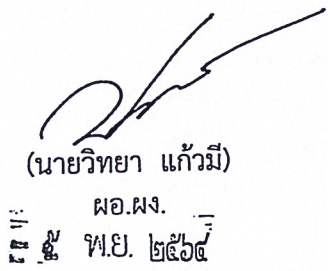 (นายวิทยา แก้วมี)
ผอ.ผง.
พ.ย. ๒๕๖๔